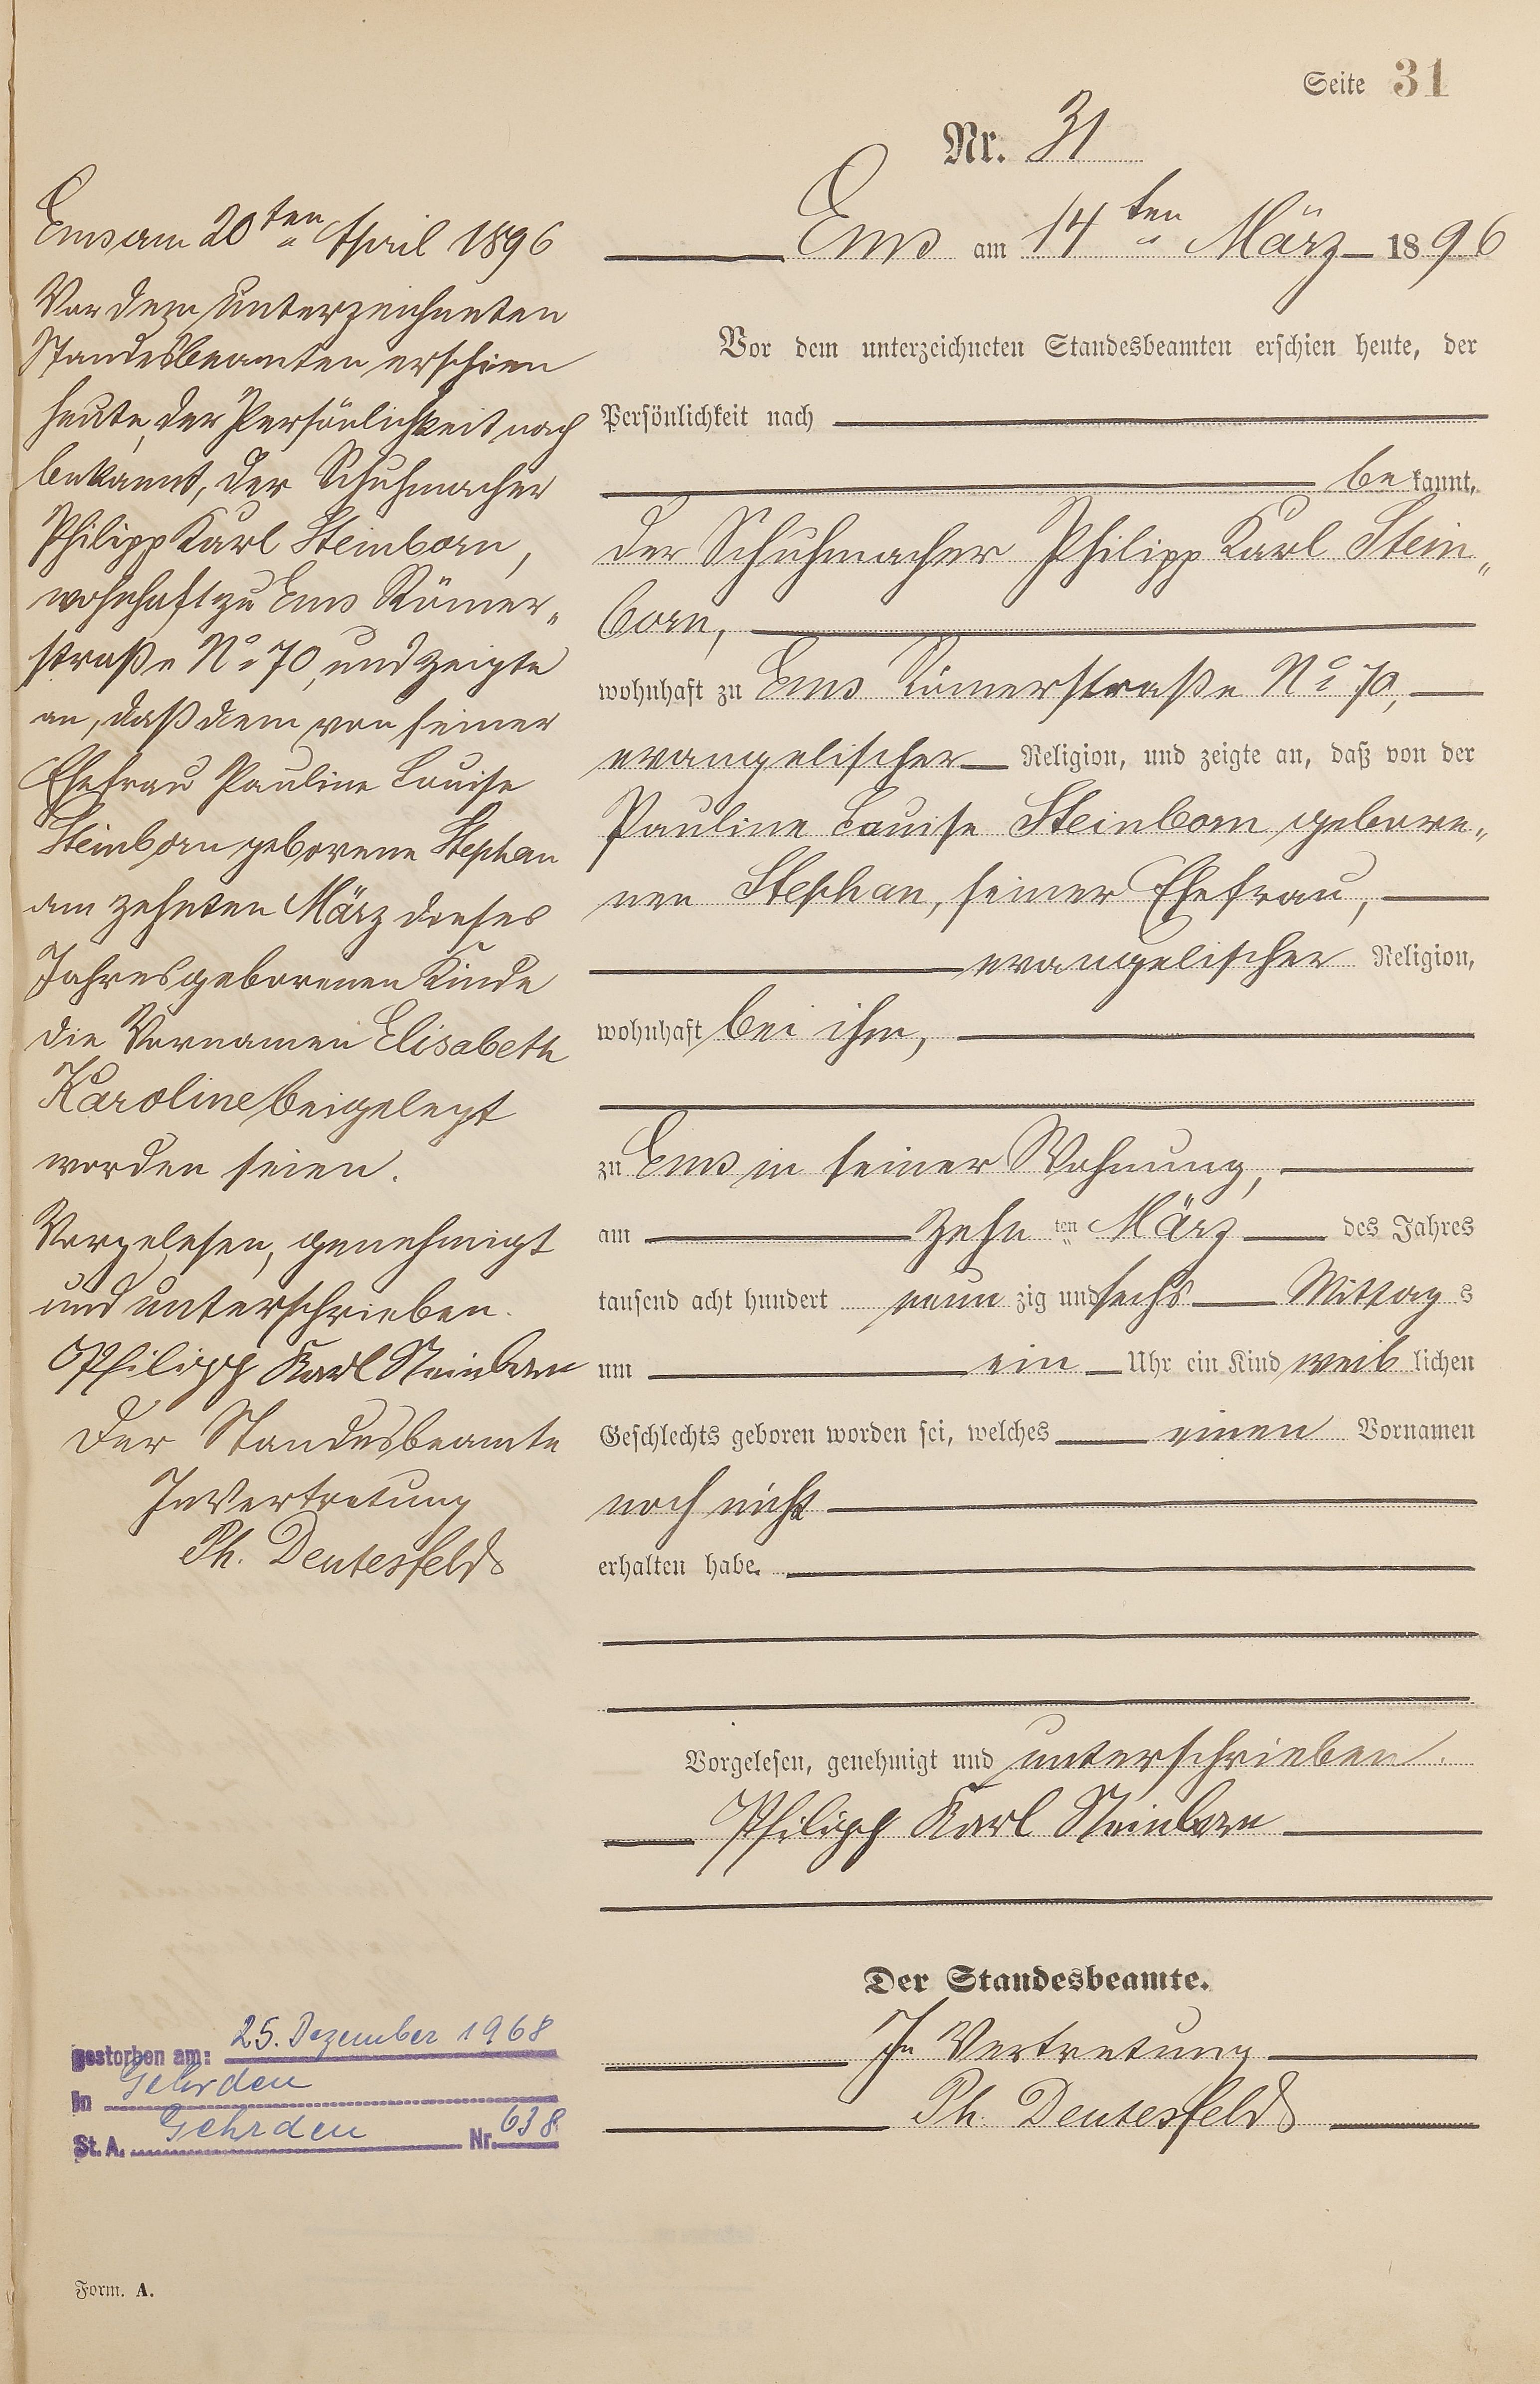 Seite 31
Nr. 31
Ems am 14ten März 1896
Vor dem unterzeichneten Standesbeamten erschien heute, der
Persönlichkeit nach
bekannt,
der Schuhmacher Philipp Karl Stein„
born,
wohnhaft zu Ems Römerstraße No 70,
evangelischer Religion, und zeigte an, daß von der
Pauline Louise Steinborn gebore„
nen Stephan, seiner Ehefrau,
evangelischer Religion,
wohnhaft bei ihm,
zu Ems in seiner Wohnung,
am zehn ten März des Jahres
tausend acht hundert neun zig und sechs Mittags
um ein Uhr ein Kind weiblichen
Geschlechts geboren worden sei, welches einen Vornamen
noch nicht
erhalten habe.
Vorgelesen, genehmigt und unterschrieben.
Philipp Karl Steinborn
Der Standesbeamte.
In Vertretung
Ph. Deutesfeld
Ems am 20ten April 1896
Vor dem unterzeichneten
Standesbeamten erschien
heute, der Persönlichkeit nach
bekannt, der Schuhmacher
Philipp Karl Steinborn,
wohnhaft zu Ems Römer„
straße No 70, und zeigte
an, daß dem von seiner
Ehefrau Pauline Louise
Steinborn geborene Stephan
am zehnten März dieses
Jahres geborenen Kinde
die Vornamen Elisabeth
Karoline beigelegt
worden seien.
Vorgelesen, genehmigt
und unterschrieben.
Philipp Karl Steinborn
Der Standesbeamte
In Vertretung
Ph. Deutesfeld
gestorben am: 25. Dezember 1968
in Gehrden
St. A. Gehrden Nr. 638
Form. A.